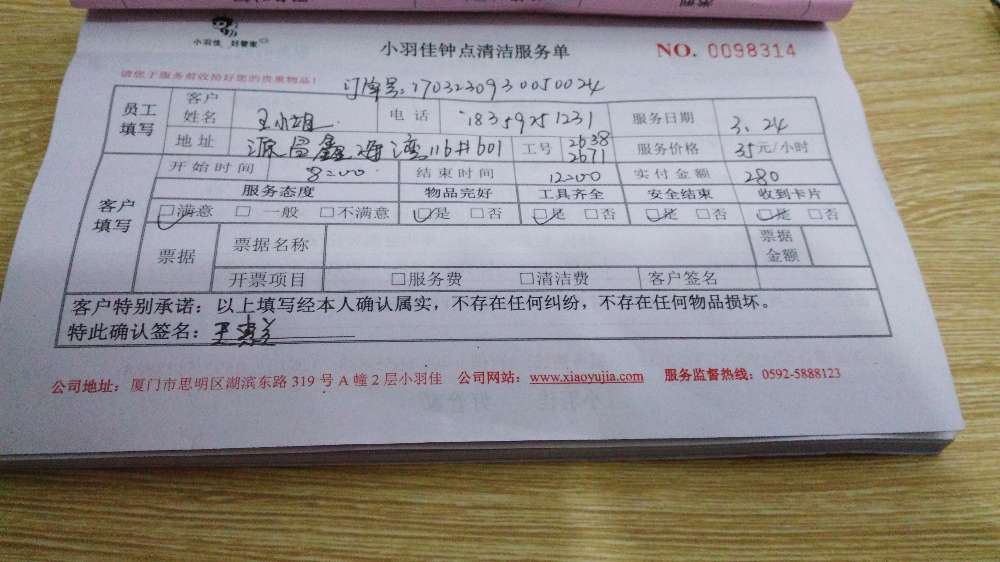 小羽佳 好管家
小羽佳钟点清洁服务单
NO. 0098314
请您于服务前收拾好您的贵重物品!
订单号:1703230930050024
员工填写 客户姓名 王小姐 电话 18359251231 服务日期 3.24
地址 源昌鑫海湾116#601 工号 2638 2671 服务价格 35元/小时
客户填写 开始时间 8:00 结束时间 12:00 实付金额 280
服务态度 物品完好 工具齐全 安全结束 收到卡片
☑满意 □ 一般 □不满意 ☑是 □否 ☑是 □否 ☑是 □否 ☑是 □否
票据 票据名称 票据金额
开票项目 □服务费 □清洁费 客户签名
客户特别承诺:以上填写经本人确认属实,不存在任何纠纷,不存在任何物品损坏。
特此确认签名:王
公司地址:厦门市思明区湖滨东路 319 号 A 幢 2 层小羽佳 公司网站:www.xiaoyujia.com 服务监督热线:0592-5888123